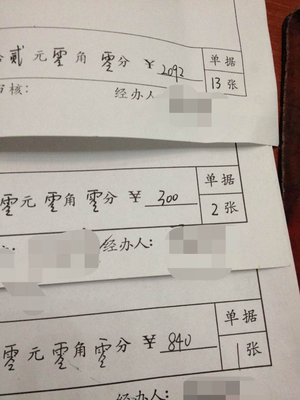 贰元零角零分 ¥2092 单据
13张
审核： 经办人
零元零角零分 ¥300 单据
2张
经办人：
零元零角零分 ¥840 单据
1张
经办人：